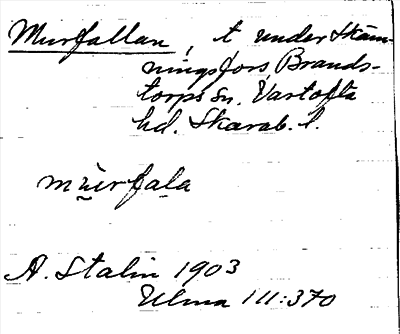 Murfallan, t under Skäm-
ningsfors, Brands-
torps sn, Vartofta
hd. Skarab. l.
mu̲rfa̲la
A. Stalin 1903
Ulma 111:370